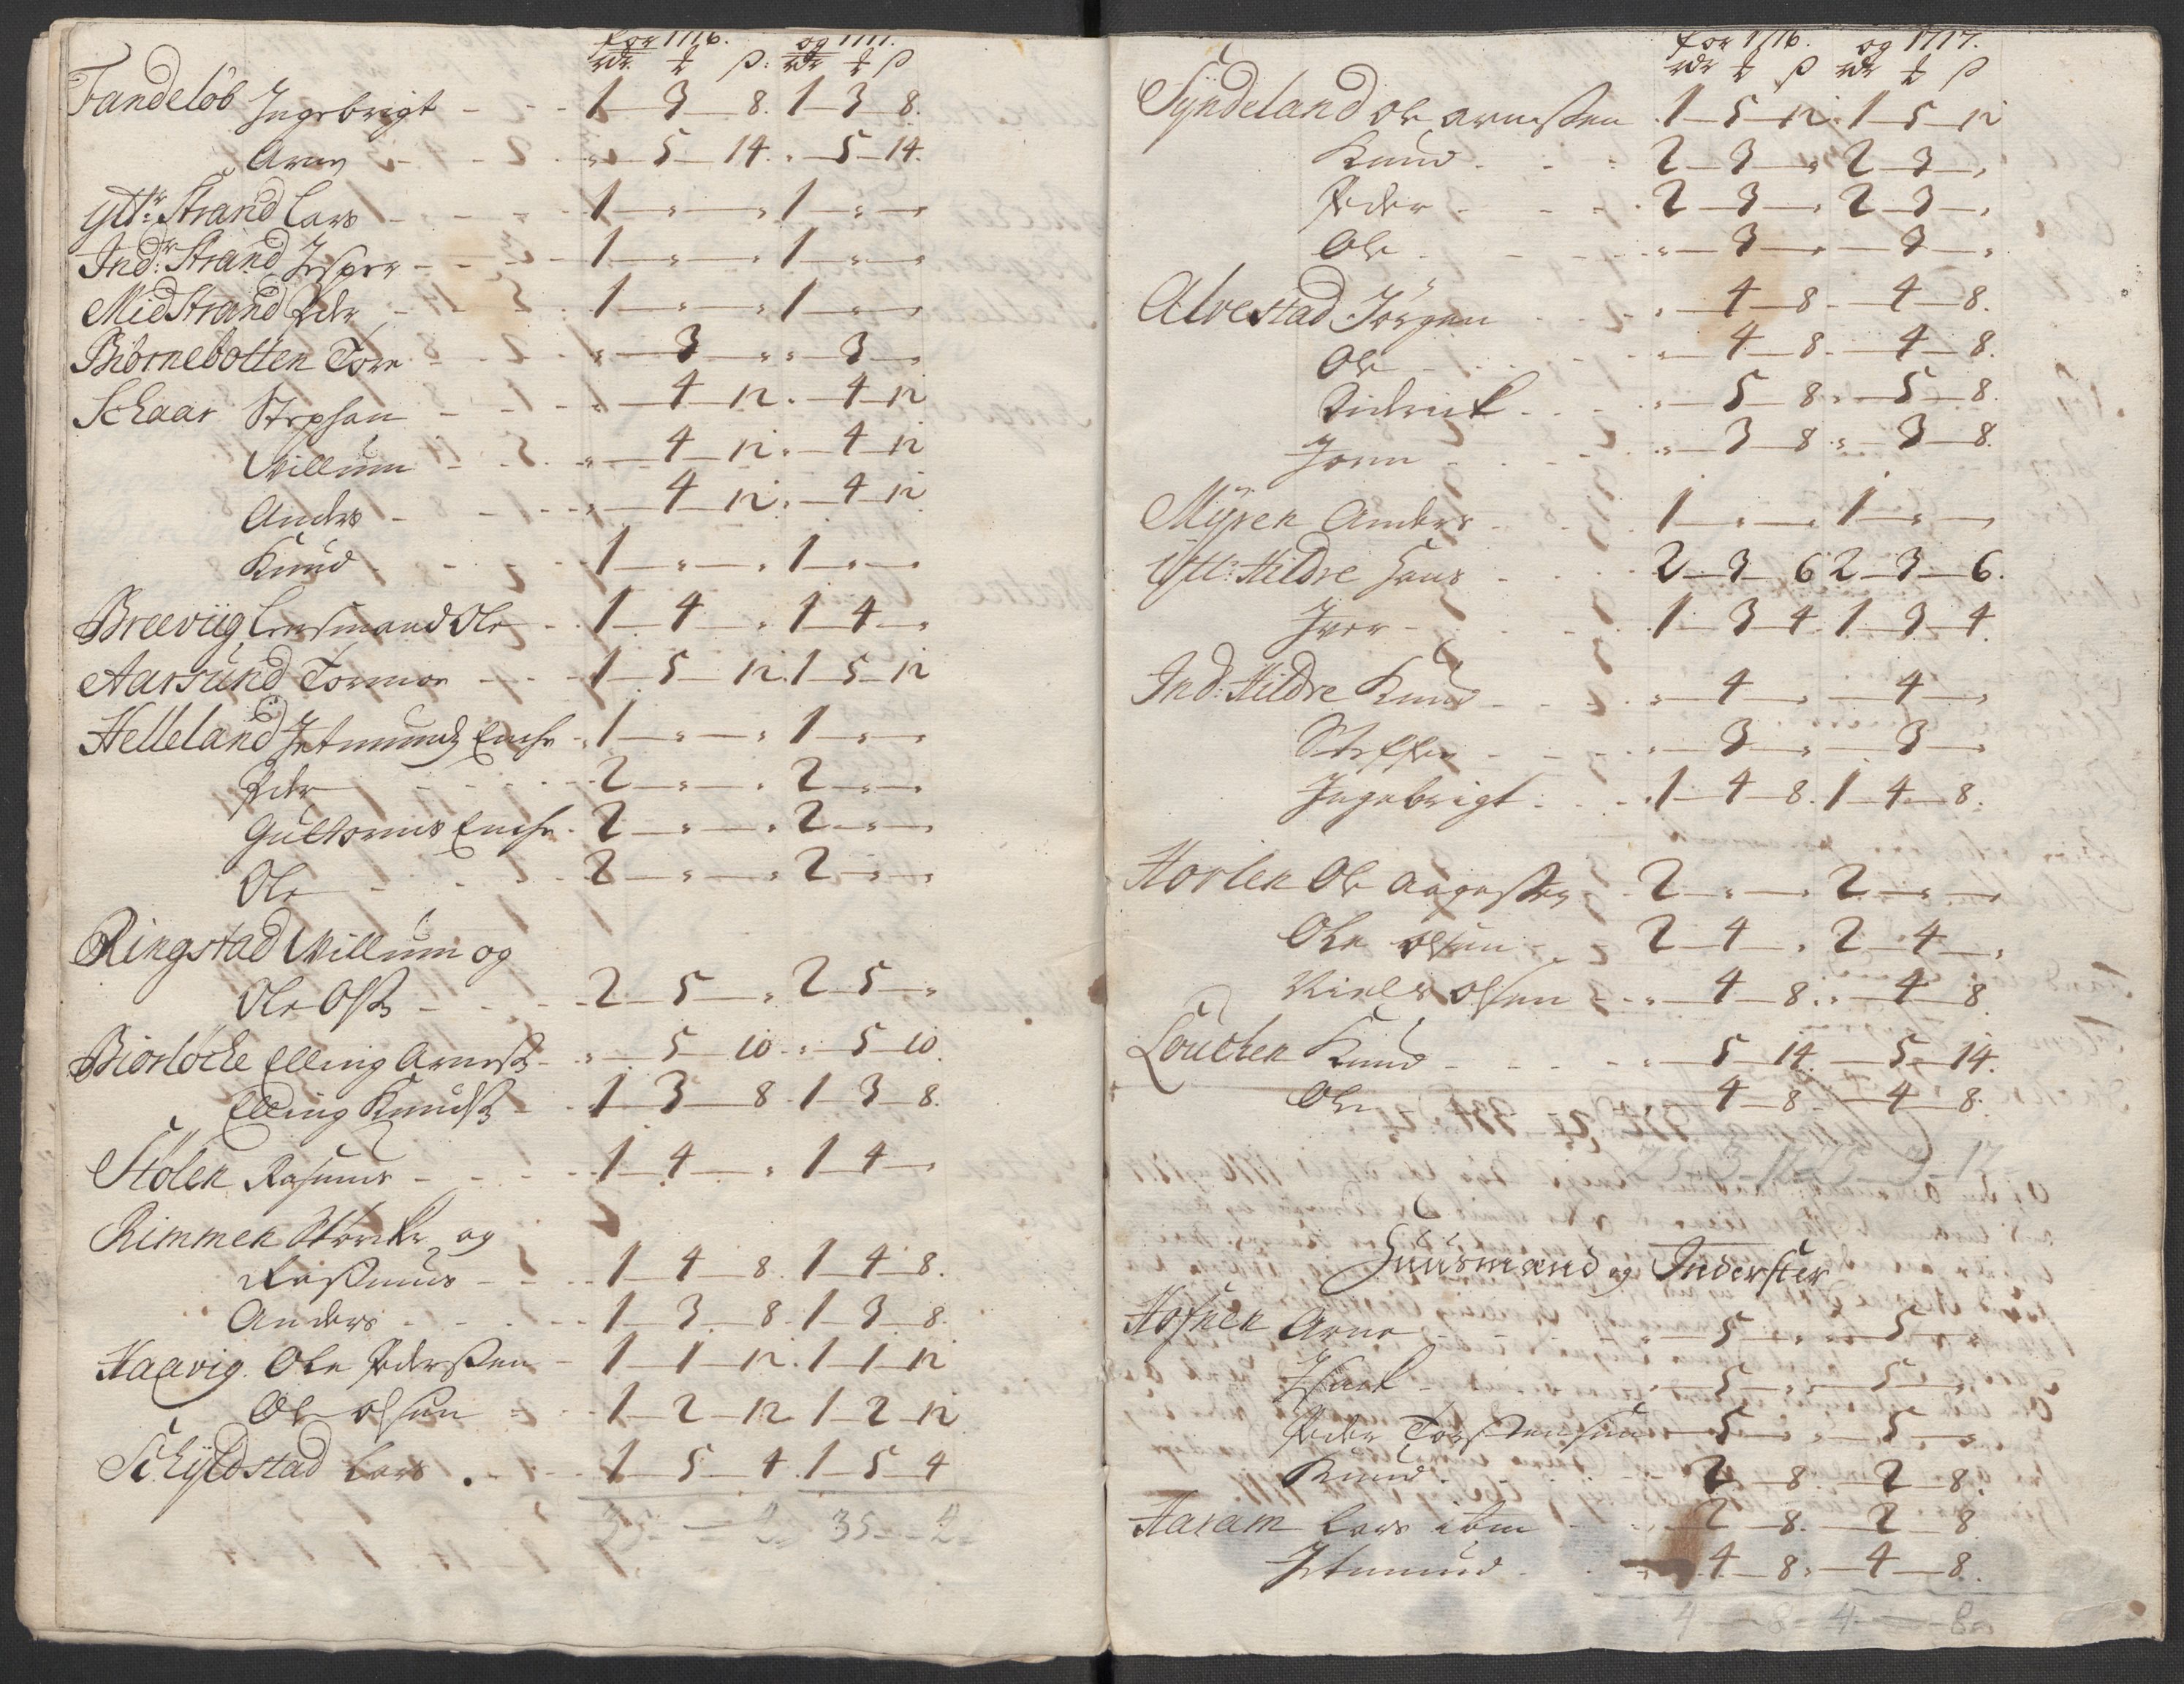 for 1716. og 1717.
rdr ƭ β: rdr ƭ β
Fandeløb Ingebrigt - - - 1 - 3 - 8. 1 - 3 - 8.
Arne - - - „ - 5 - 14. „ - 5 - 14.
Ytt:r Strand Lars - - - 1 - „ - „ 1 - „ - „
Ind:r Strand Jesper - - - 1 - „ - „ 1 - „ - „
Mid Strand Peder - - 1 - „ - „ 1 - „ - „
Biørnebotten Tore - - „ - 3 - „ „ - 3 - „
Schaar Stephen - - - „ - 4 - 12. - 4 - 12
Willum - - - „ - 4 - 12. „ - 4 - 12
Anders - - - „ - 4 - 12. „ - 4 - 12
Knud - - - 1 - „ - „ 1 - „ - „
Breeviig Lensmand Ole - 1 - 4 - „ 1 - 4 - „
Aarsund Tormor - - - 1 - 5 - 12. 1 - 5 - 12
Helleland Jetmunds Enche - 1 - „ - „ 1 - „ - „
Peder - - - 2 - „ - „ 2 - „ - „
Guttorms Enche - 2 - „ - „ 2 - „ - „
Ole - - - 2 - „ - „ 2 - „ - „
Ringstad Willum og
Ole Olß - - - 2 - 5 - „ 2 - 5 - „
Biorløcke Elling Arneß - „ - 5 - 10 - „ - 5 - 10.
Elling Knudß - 1 - 3 - 8 - 1 - 3 - 8.
Stølen Rasmus - - - 1 - 4 - „ 1 - 4 - „
Rimmen og
Raßmus - - 1 - 4 - 8. 1 - 4 - 8.
Anders - - - 1 - 3 - 8. 1 - 3 - 8.
Haavig. Ole Pederßen - 1 - 1 - 12. 1 - 1 - 12
Ole olsen - - 1 - 2 - 12 1 - 2 - 12
Schyldstad Lars. - - - 1 - 5 - 4. 1 - 5 - 4
35 - - 2 35 - - 2
for 1716. og 1717.
rdr ƭ β rdr ƭ β
Syndeland Ole arneßen 1 - 5 - 12. 1 - 5 - 12
Knud - - - 2 - 3 - „ 2 - 3 - „
Peder - - - 2 - 3 - „ 2 - 3 - „
Ole - - - „ - 3 - „ - 3 - „
Alvestad Jörgen - - - „ 4 - 8 - 4 - 8.
Ole - - - „ - 4 - 8 - 4 - 8.
Didrick - - - „ - 5 - 8. „ - 5 - 8.
Joen - - - „ - 3 - 8. „ - 3 - 8.
Myren Anders - - - 1 - „ - „ 1 - „ - „
Ytt: Hildre Hans - - 2 - 3 - 6 2 - 3 - 6.
Iver - - - 1 - 3 - 4. 1 - 3 - 4.
Ind: Hildre Knud - - - „ - 4 - „ - 4 - „
Steffen - - - „ - 3 - „ - 3 - „
Ingebrigt - - - 1 - 4 - 8. 1 - 4 - 8.
Horlen Ole Aageßen 2 - „ - „ 2 - „ - „
Ole olsen - - 2 - 4 - „ 2 - 4 - „
Niels olsen - - „ - 4 - 8. „ - 4 - 8
Louchen Knud - - - „ - 5 - 14. - 5 - 14.
Ole - - - 4 - 8 - 4 - 8.
Huusmænd og Inderster
Hofnen Arne - - - „ - 5 - „ - 5 - „
Isack - - - „ - 5 - „ - 5 - „
Peder Torstensen - 5 - „ - 5 - „
Knud. - - - 2 - 8. - 2 - 8.
Haram Lars ibm - - „ - 2 - 8. - 2 - 8
Jetmund - - - 4 - 8. - 4 - 8.
4 - - 8 - 4 - - 8